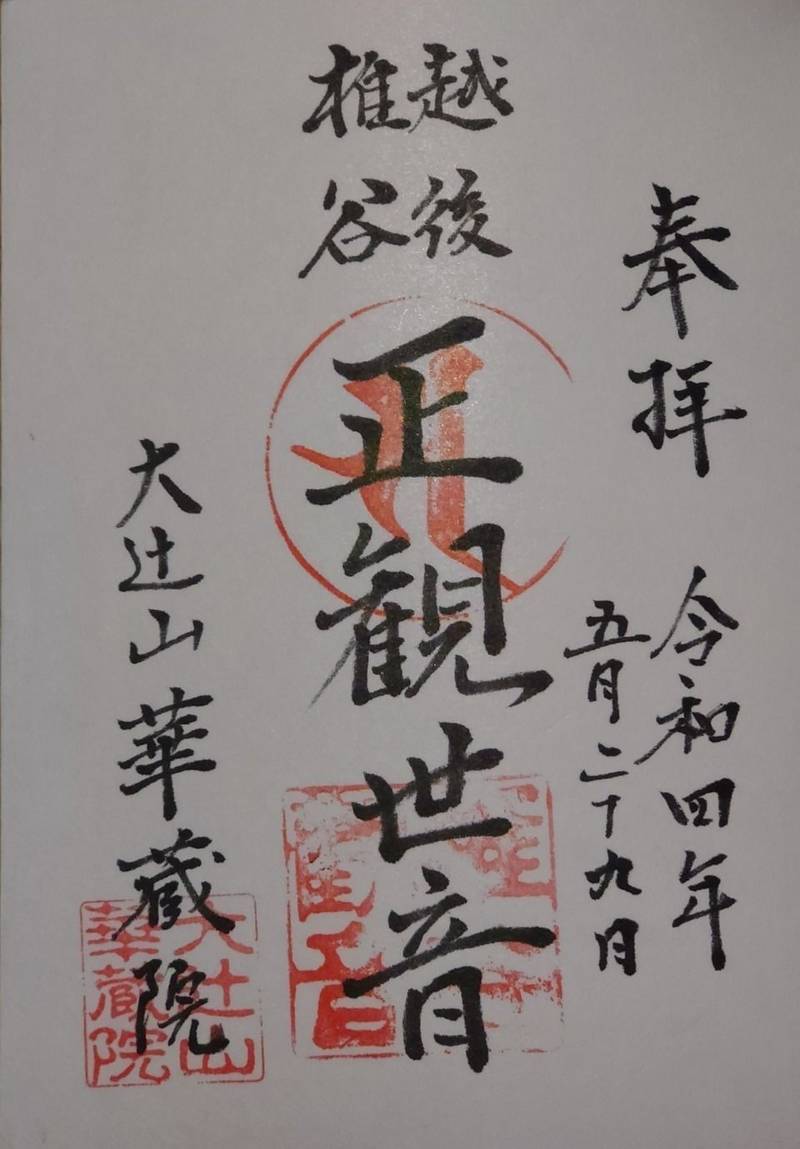 奉拝
令和四年
五月二十九日
越後
椎谷
正観世音
大辻山華蔵院
大辻山
華蔵院